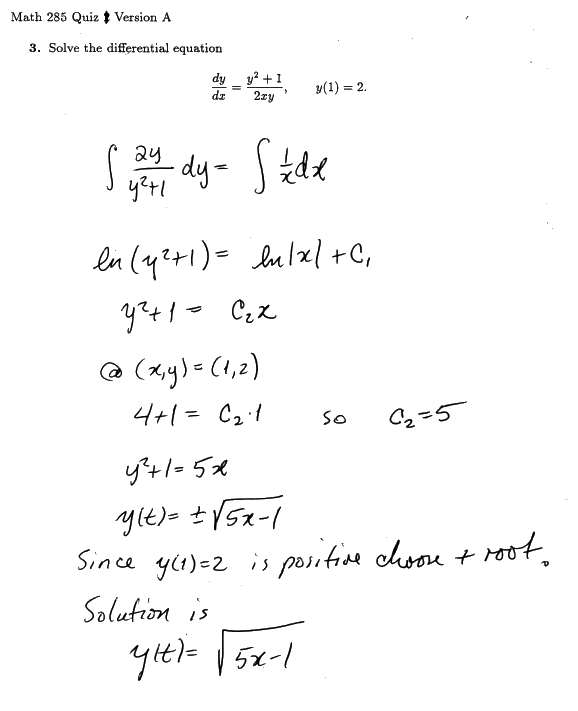 Math 285 Quiz Version A
3. Solve the differential equation
dy/dx = (y² + 1)/(2xy), y(1) = 2.
∫ 2y/(y²+1) dy = ∫ 1/x dx
ln(y²+1) = ln|x| + C₁
y²+1 = C₂x
@ (x,y) = (1,2)
4+1 = C₂·1 so C₂=5
y²+1 = 5x
y(t) = ±√(5x-1)
Since y(1)=2 is positive choose + root.
Solution is
y(t) = √(5x-1)